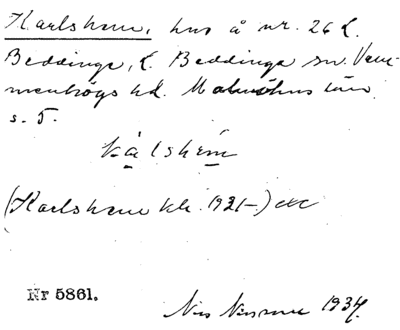 Karlshem, hus å nr. 26 L.
Beddinge, L. Beddinge sn. Vem-
menhögs hd. Malmöhus län
s. 5.
kạ̊lshẹm
(Karlshem kk. 1921–) etc
Nr 5861.
Nils Nilsson 1934.